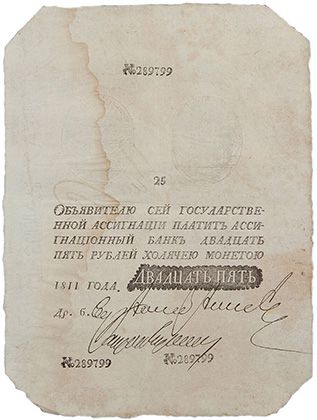 №289799
25
Объявителю сей государстве-
нной ассигнации платит асси-
гнационный банкъ двадцать
пять рублей ходячею монетою
1811 года.
Двадцать пять
№289799
№289799